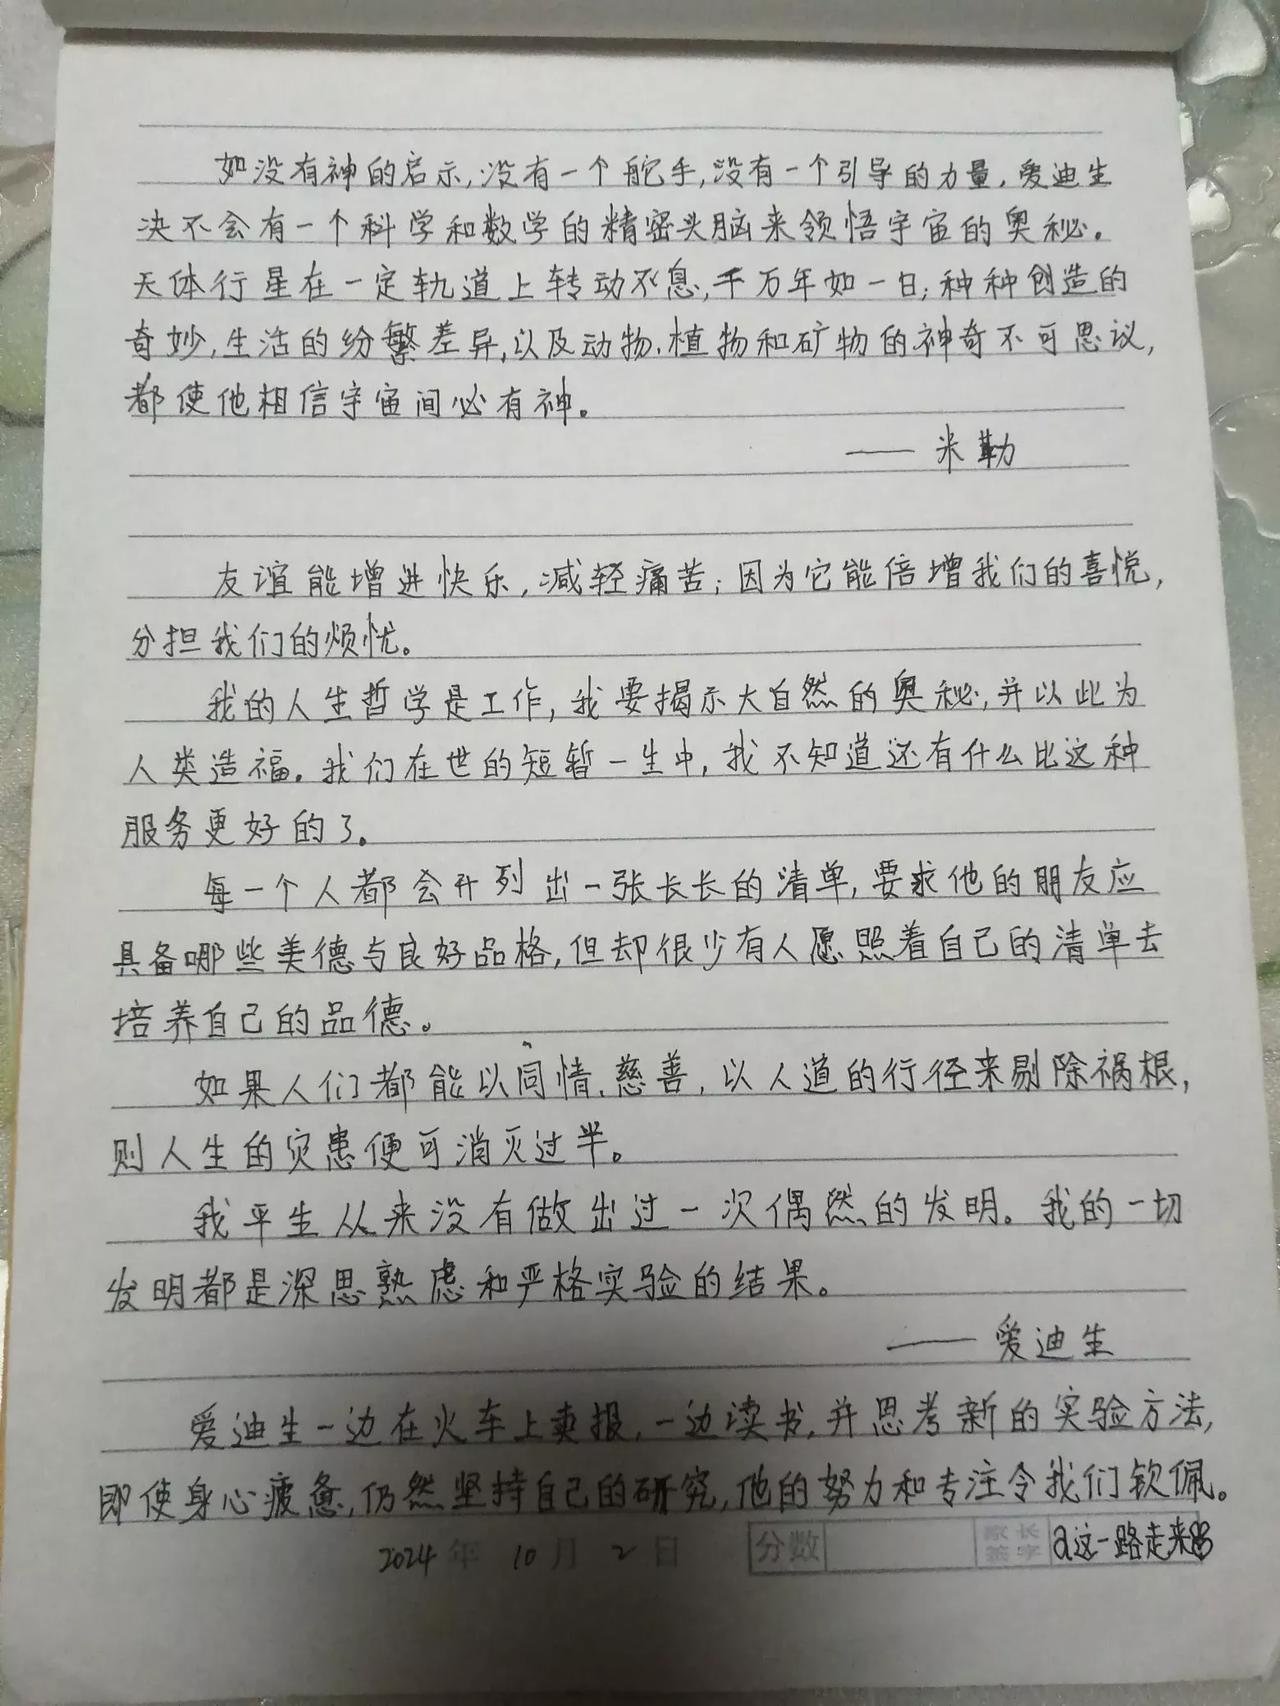 如没有神的启示,没有一个舵手,没有一个引导的力量,爱迪生
决不会有一个科学和数学的精密头脑来领悟宇宙的奥秘。
天体行星在一定轨道上转动不息,千万年如一日;种种创造的
奇妙,生活的纷繁差异,以及动物、植物和矿物的神奇不可思议,
都使他相信宇宙间必有神。
—— 米勒
友谊能增进快乐,减轻痛苦;因为它能倍增我们的喜悦,
分担我们的烦忧。
我的人生哲学是工作,我要揭示大自然的奥秘,并以此为
人类造福。我们在世的短暂一生中,我不知道还有什么比这种
服务更好的了。
每一个人都会开列出一张长长的清单,要求他的朋友应
具备哪些美德与良好品格,但却很少有人愿照着自己的清单去
培养自己的品德。
如果人们都能以同情、慈善,以人道的行径来剔除祸根,
则人生的灾患便可消灭过半。
我平生从来没有做出过一次偶然的发明。我的一切
发明都是深思熟虑和严格实验的结果。
—— 爱迪生
爱迪生一边在火车上卖报,一边读书,并思考新的实验方法,
即使身心疲惫,仍然坚持自己的研究,他的努力和专注令我们钦佩。
2024 年 10 月 2 日 分数 家长签字 a这一路走来